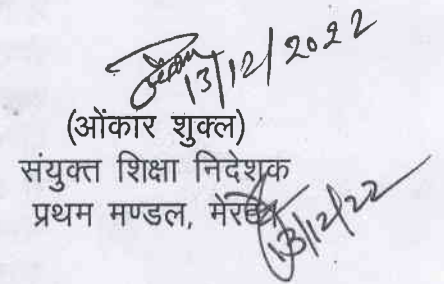 13/12/2022
(ओंकार शुक्ल)
संयुक्त शिक्षा निदेशक
प्रथम मण्डल, मेरठ
13/12/22